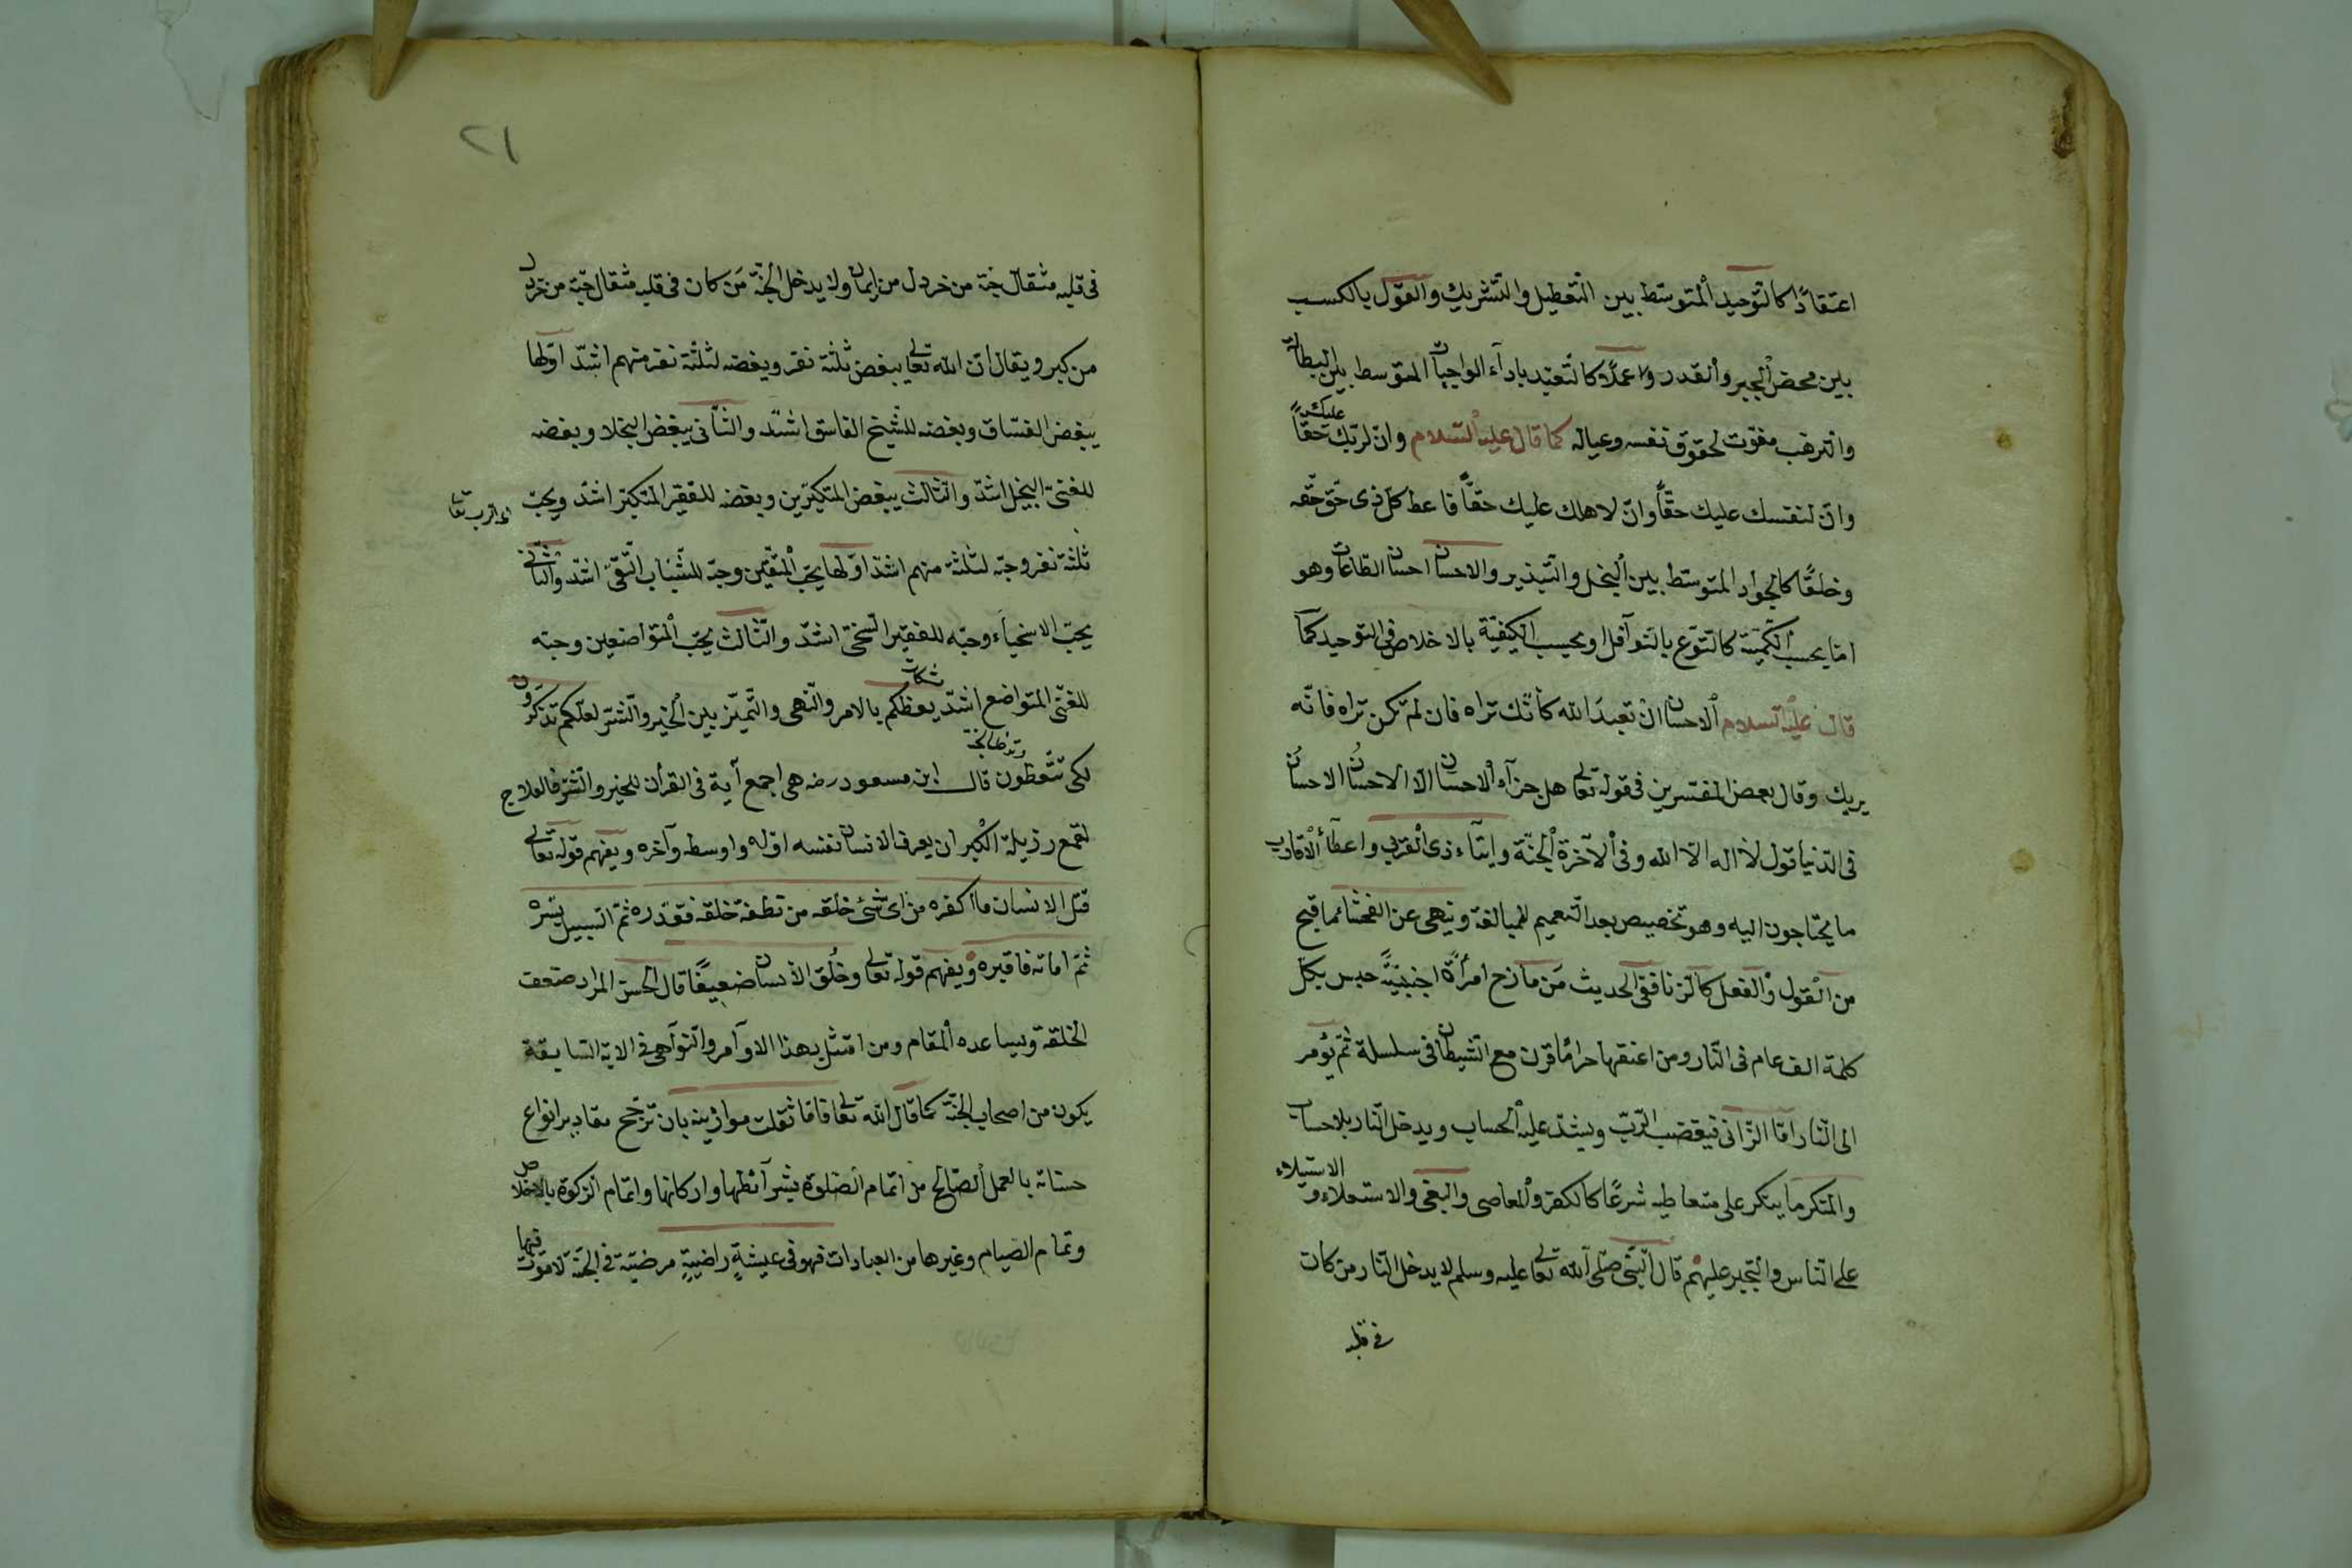 اعتقادًا كالتوحيد المتوسّط بين التعطيل والتشريك والقول بالكسب
بين محض الجبر والقدر وعملًا كالتعبّد بادآء الواجبات المتوسط بين البطالة
والترهب مفوّت لحقوق نفسه وعياله كما قال عليه السلام وانّ لربّك عليك حقًّا
وانّ لنفسك عليك حقًّا وانّ لاهلك عليك حقًّا فاعط كلّ ذى حقّ حقّه
وخلقًا كالجود المتوسّط بين البخل والتبذير والاحسان احسان الطّاعات وهو
امّا بحسب الكمّيّة كالتطوّع بالنوآفل او بحسب الكيفيّة بالاخلاص فى التوحيد كمآ
قال عليه السلام ألاحسان ان تعبدَ الله كأنّك تراه فان لم تكن تراه فانّه
يريك وقال بعض المفسّرين فى قوله تعالى هل جزآء الاحسان الّا الاحسان الاحسان
فى الدّنيا قول لا اله الّا الله وفى الآخرة الجنّة وايتآء ذى القربى واعطآء الاقارب
ما يحتاجون اليه وهو تخصيص بعد التعميم للمبالغة وينهى عن الفحشآء ما قبح
من القول والفعل كالزنا ففى الحديث مَن مازح امرأةً اجنبيّةً حبس بكلّ
كلمة الف عام فى النّار ومن اعتنقها حرامًا قرن مع الشيطان فى سلسلة ثمّ يؤمر
الى النّار امّا الزّانى فيغضب الربّ ويشدّد عليه الحساب ويدخل النّار بلا حساب
والمنكر ما ينكر على متعاطيه شرعًا كالكفر والمعاصى والبغى والاستعلاء و الاستيلاء
على النّاس والتجبر عليهم قال النّبى صلّى الله تعالى عليه وسلم لا يدخل النّار من كان
فى قلبه
٢١
فى قلبه مثقال حبّة من خردل من ايمان ولا يدخل الجنّة مَن كان فى قلبه مثقال حبّة من خردل
من كبر ويقال انّ الله تعالى يبغض ثلثة نفر وبغضه لثلثة نفر منهم اشدّ اوّلها
يبغض الفسّاق وبغضه للشيخ الفاسق اشدّ والثّانى يبغض البخلا وبغضه
للغنىّ البخيل اشدّ والثّالث يبغض المتكبّرين وبغضه للفقير المتكبّر اشدّ ويحبّ
ثلثة نفر وحبّه لثلثة منهم اشدّ اوّلها يحبّ المتّقين وحبّه للشّباب التّقىّ اشدّ والثّانى
يحبّ الاسخيآء وحبّه للفقير السّخىّ اشدّ والثّالث يحبّ المتواضعين وحبّه
للغنّى المتواضع اشدّ يعظكم بالامر والنّهى والتّميز بين الخير والشرّ لعلّكم تذكّرون
لكى تتّعظون قال ابن مسعود رضه هى اجمع آية فى القرأن للخير والشّرّ فالعلاج
لقمع رذيلة الكبر ان يعرف الانسان نفسه اوّله واوسطه وآخره ويفهم قوله تعالى
قتل الانسان ما اكفره من اىّ شئ خلقه من نطفة خلقه فقدّره ثمّ السّبيل يسّره
ثمّ اماته فاقبره ويفهم قوله تعالى وخُلق الانسان ضعيفًا قال الحسن المراد ضعف
الخلقة ويساعده المقام ومن امتثل بهذا الاوآمر والنّوآهى فى الاية السّابقة
يكون من اصحاب الجنّة كما قال الله تعالى فامّا من ثقلت موازينه بان ترجّح مقادير انواع
حسناته بالعمل الصّالح من اتمام الصّلوة بشرآئطها واركانها واتمام الزكوة بالاخلاص
وتمام الصّيام وغيرها من العبادات فهو فى عيشةٍ راضيةٍ مرضيّة فى الجنّة لا موت فيها